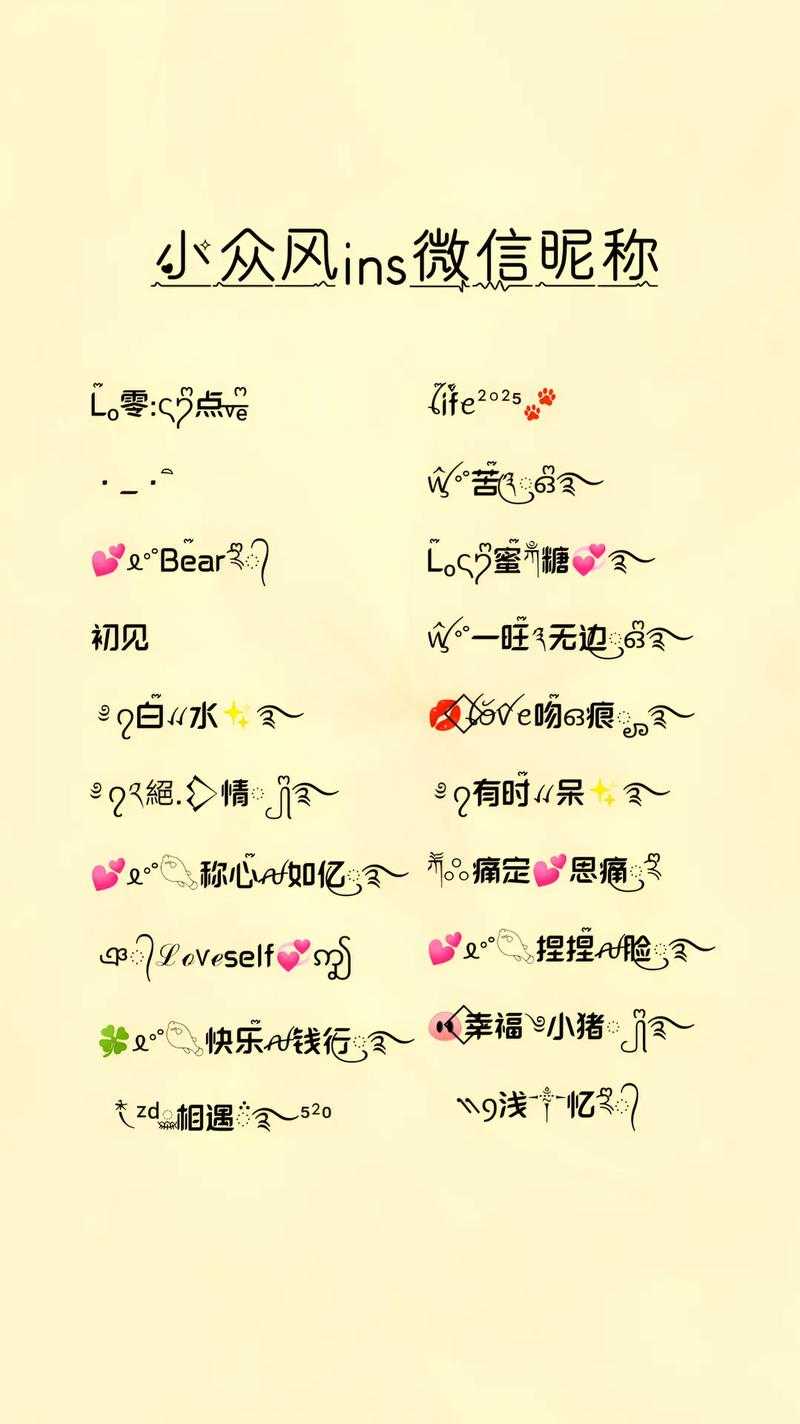 小众风ins微信昵称
Lo零:点ve
Life²⁰²⁵🐾
._.
W°°苦
💕ዲ°°Bear
Lo蜜糖💞
初见
W°°一旺无边
༄白〃水✨࿐
💋Love吻ఒ痕࿐
༄絕.情࿐
༄有时〃呆✨࿐
💕ዲ°°称心如亿࿐
痛定💕思痛
ℒℴѵℯself💞
💕ዲ°°捏捏脸࿐
🍀ዲ°°快乐钱行࿐
🐽幸福༄小猪࿐
zd相遇࿐⁵²⁰
浅忆